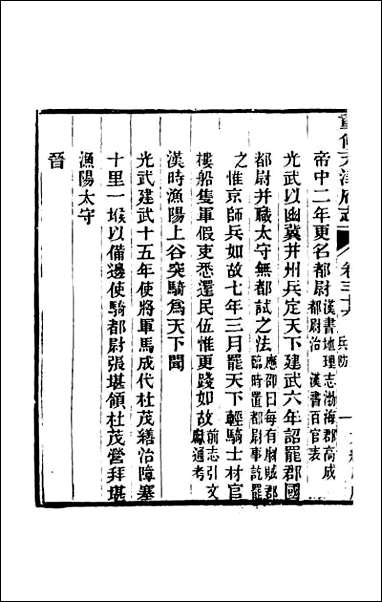 重修天津府志 卷三十六 兵防 一
帝中二年更名都尉 漢書地理志渤海郡高成
都尉治 漢書百官表
光武以幽冀并州兵定天下建武六年詔罷郡國
都尉并職太守無都試之法 應卲曰每有劇賊郡
臨時置都尉事訖罷
之惟京師兵如故七年三月罷天下輕騎士材官
樓船隻軍假吏悉還民伍惟更踐如故 前志引文
獻通考
漢時漁陽上谷突騎爲天下聞
光武建武十五年使將軍馬成代杜茂繕治障塞
十里一堠以備邊使騎都尉張堪領杜茂營拜堪
漁陽太守
晉